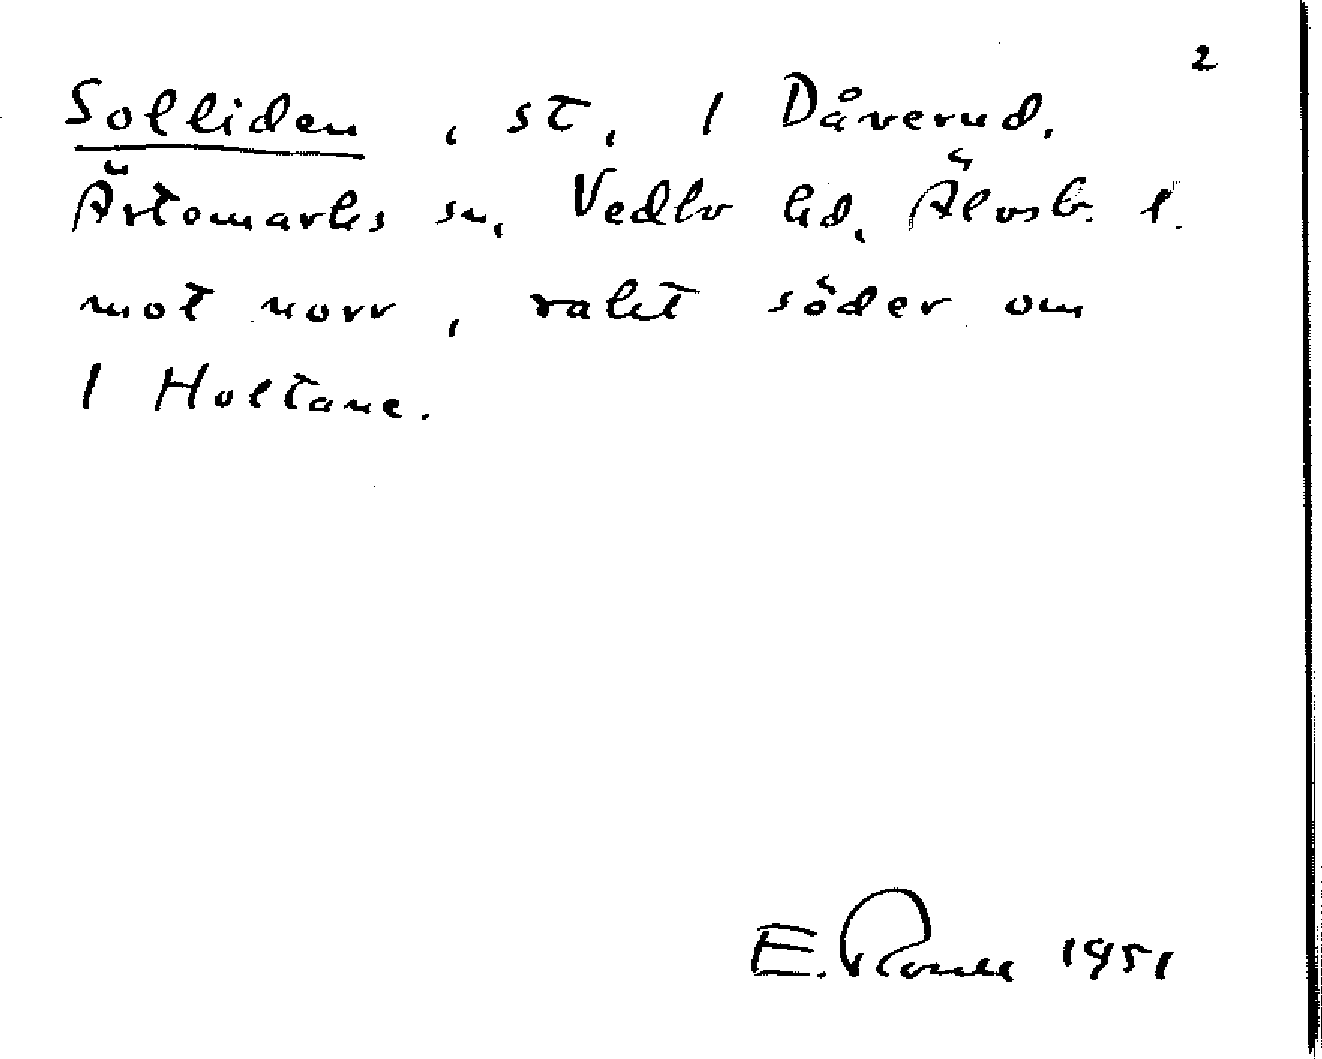 2
Solliden, st, 1 Dåverud.
Ärtomarks sn, Vedbo hd, Älvsb. l.
mot norr, rakt söder om
1 Holtane.
E. 1951